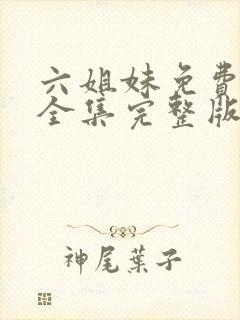 六姐妹免費
全集完整版
神尾葉子